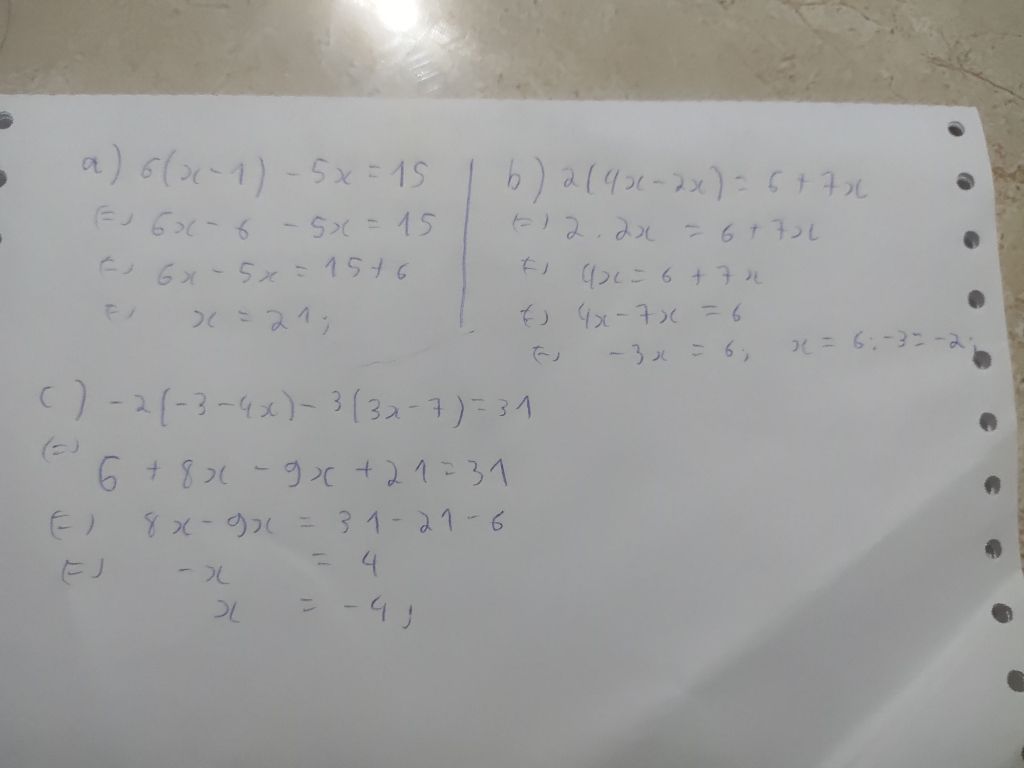 a) 6(x-1) - 5x = 15
(=) 6x - 6 - 5x = 15
(=) 6x - 5x = 15 + 6
(=) x = 21;
b) 2(4x - 2x) = 6 + 7x
(=) 2 . 2x = 6 + 7x
(=) 4x = 6 + 7x
(=) 4x - 7x = 6
(=) -3x = 6; x = 6:-3 = -2;
c) -2(-3 - 4x) - 3(3x - 7) = 31
(=)
6 + 8x - 9x + 21 = 31
(=) 8x - 9x = 31 - 21 - 6
(=) -x = 4
x = -4;